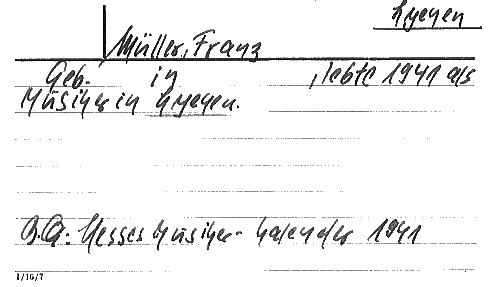 Müller, Franz
Geb. in , lebte 1941 als
Musiker in
B.Q.: Hesses Musiker-Kalender 1941
1/16/7